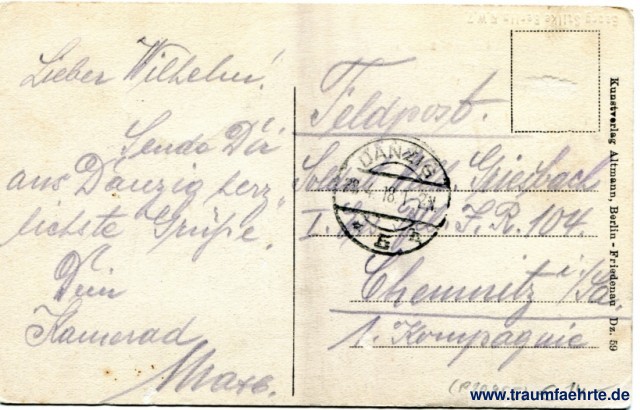 Lieber Wilhelm!
Sende Dir
aus Danzig herz
lichste Grüße.
Dein
Kamerad
Max.
Feldpost.
Griesbach
I. J.R. 104.
Chemnitz i/Sa
1. Kompagnie
DANZIG
4.18.1
Kunstverlag Altmann, Berlin - Friedenau Dz. 59
www.traumfaehrte.de